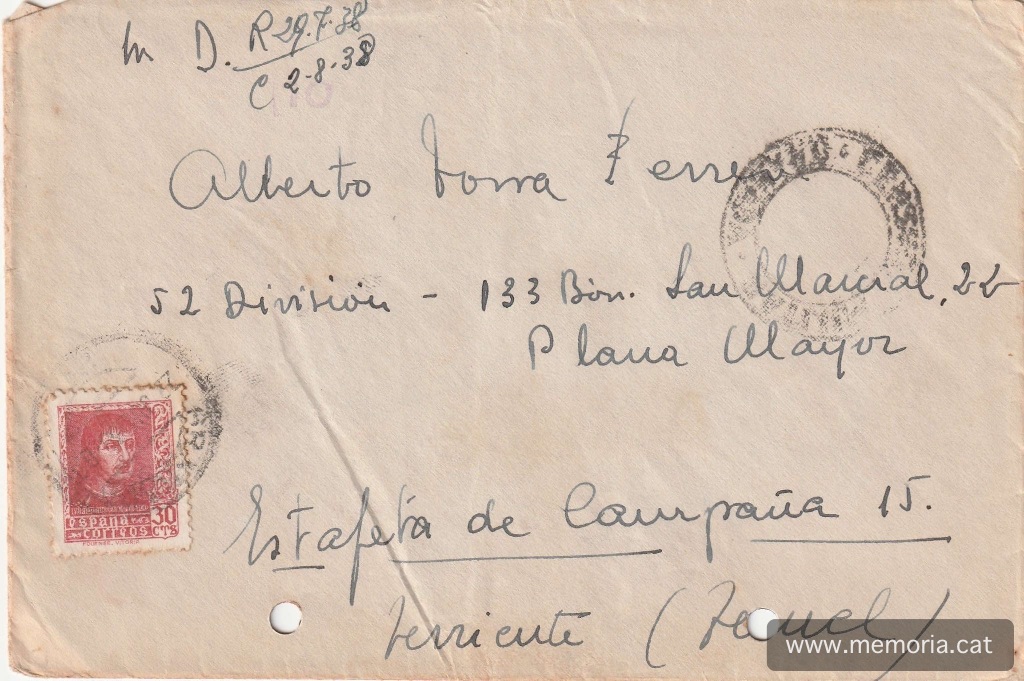 M D. R 29.7.38
C 2-8-38
Alberto Torra Ferrera
52 División - 133 Bón. San Marcial, 22
Plana Mayor
30
españa
correos CTS
Estafeta de Campaña 15.
Terriente (Teruel)
www.memoria.cat